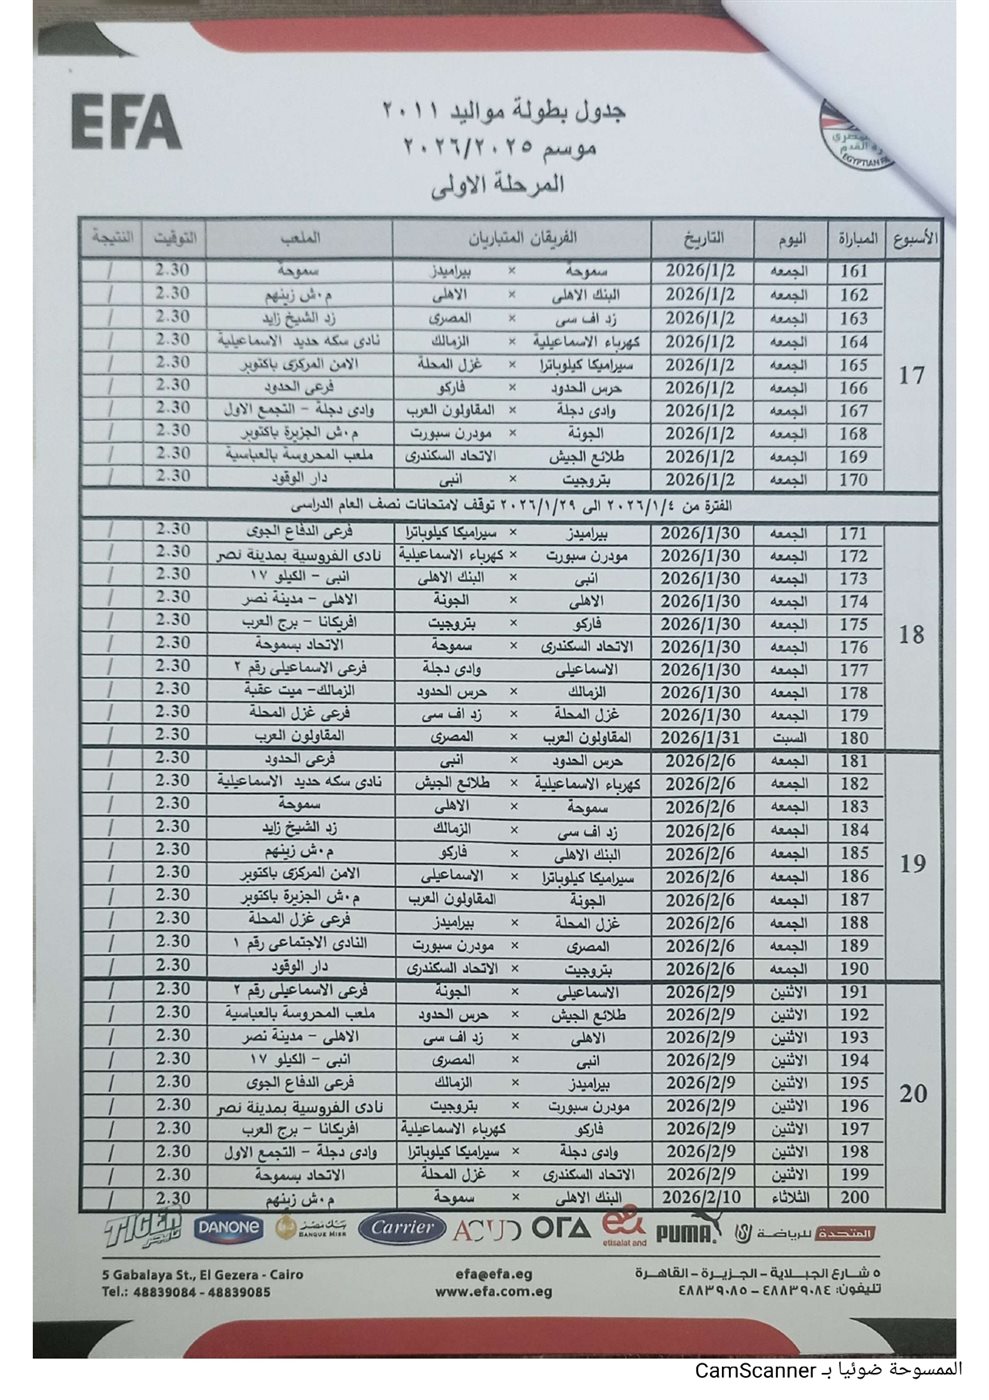 EFA
جدول بطولة مواليد ٢٠١١
موسم ٢٠٢٦/٢٠٢٥
المرحلة الاولى
EGYPTIAN
الأسبوع المباراة اليوم التاريخ الفريقان المتباريان الملعب التوقيت النتيجة
17
161 الجمعه 2026/1/2 سموحة × بيراميدز سموحة 2.30 /
162 الجمعه 2026/1/2 البنك الاهلى × الاهلى م٠ش زينهم 2.30 /
163 الجمعه 2026/1/2 زد اف سى × المصرى زد الشيخ زايد 2.30 /
164 الجمعه 2026/1/2 كهرباء الاسماعيلية × الزمالك نادى سكه حديد الاسماعيلية 2.30 /
165 الجمعه 2026/1/2 سيراميكا كيلوباترا × غزل المحلة الامن المركزى باكتوبر 2.30 /
166 الجمعه 2026/1/2 حرس الحدود × فاركو فرعى الحدود 2.30 /
167 الجمعه 2026/1/2 وادى دجلة × المقاولون العرب وادى دجلة – التجمع الاول 2.30 /
168 الجمعه 2026/1/2 الجونة × مودرن سبورت م٠ش الجزيرة باكتوبر 2.30 /
169 الجمعه 2026/1/2 طلائع الجيش الاتحاد السكندرى ملعب المحروسة بالعباسية 2.30 /
170 الجمعه 2026/1/2 بتروجيت × انبى دار الوقود 2.30 /
الفترة من ٢٠٢٦/١/٤ الى ٢٠٢٦/١/٢٩ توقف لامتحانات نصف العام الدراسى
18
171 الجمعه 2026/1/30 بيراميدز × سيراميكا كيلوباترا فرعى الدفاع الجوى 2.30 /
172 الجمعه 2026/1/30 مودرن سبورت × كهرباء الاسماعيلية نادى الفروسية بمدينة نصر 2.30 /
173 الجمعه 2026/1/30 انبى × البنك الاهلى انبى – الكيلو ١٧ 2.30 /
174 الجمعه 2026/1/30 الاهلى × الجونة الاهلى – مدينة نصر 2.30 /
175 الجمعه 2026/1/30 فاركو × بتروجيت افريكانا – برج العرب 2.30 /
176 الجمعه 2026/1/30 الاتحاد السكندرى × سموحة الاتحاد بسموحة 2.30 /
177 الجمعه 2026/1/30 الاسماعيلى وادى دجلة فرعى الاسماعيلى رقم ٢ 2.30 /
178 الجمعه 2026/1/30 الزمالك × حرس الحدود الزمالك– ميت عقبة 2.30 /
179 الجمعه 2026/1/30 غزل المحلة × زد اف سى فرعى غزل المحلة 2.30 /
180 السبت 2026/1/31 المقاولون العرب × المصرى المقاولون العرب 2.30 /
19
181 الجمعه 2026/2/6 حرس الحدود × انبى فرعى الحدود 2.30 /
182 الجمعه 2026/2/6 كهرباء الاسماعيلية × طلائع الجيش نادى سكه حديد الاسماعيلية 2.30 /
183 الجمعه 2026/2/6 سموحة × الاهلى سموحة 2.30 /
184 الجمعه 2026/2/6 زد اف سى × الزمالك زد الشيخ زايد 2.30 /
185 الجمعه 2026/2/6 البنك الاهلى × فاركو م٠ش زينهم 2.30 /
186 الجمعه 2026/2/6 سيراميكا كيلوباترا × الاسماعيلى الامن المركزى باكتوبر 2.30 /
187 الجمعه 2026/2/6 الجونة المقاولون العرب م٠ش الجزيرة باكتوبر 2.30 /
188 الجمعه 2026/2/6 غزل المحلة × بيراميدز فرعى غزل المحلة 2.30 /
189 الجمعه 2026/2/6 المصرى × مودرن سبورت النادى الاجتماعى رقم ١ 2.30 /
190 الجمعه 2026/2/6 بتروجيت × الاتحاد السكندرى دار الوقود 2.30 /
20
191 الاثنين 2026/2/9 الاسماعيلى × الجونة فرعى الاسماعيلى رقم ٢ 2.30 /
192 الاثنين 2026/2/9 طلائع الجيش × حرس الحدود ملعب المحروسة بالعباسية 2.30 /
193 الاثنين 2026/2/9 الاهلى × زد اف سى الاهلى – مدينة نصر 2.30 /
194 الاثنين 2026/2/9 انبى × المصرى انبى – الكيلو ١٧ 2.30 /
195 الاثنين 2026/2/9 بيراميدز × الزمالك فرعى الدفاع الجوى 2.30 /
196 الاثنين 2026/2/9 مودرن سبورت × بتروجيت نادى الفروسية بمدينة نصر 2.30 /
197 الاثنين 2026/2/9 فاركو كهرباء الاسماعيلية افريكانا – برج العرب 2.30 /
198 الاثنين 2026/2/9 وادى دجلة × سيراميكا كيلوباترا وادى دجلة – التجمع الاول 2.30 /
199 الاثنين 2026/2/9 الاتحاد السكندرى × غزل المحلة الاتحاد بسموحة 2.30 /
200 الثلاثاء 2026/2/10 البنك الاهلى × سموحة م٠ش زينهم 2.30 /
TIGER DANONE بنك مصر BANQUE MISR Carrier ACUD ORA etisalat and PUMA المتحدة للرياضة
٥ شارع الجبلاية – الجزيرة – القاهرة
تليفون: ٤٨٨٣٩٠٨٤ – ٤٨٨٣٩٠٨٥
efa@efa.eg
www.efa.com.eg
5 Gabalaya St., El Gezera - Cairo
Tel.: 48839084 - 48839085
الممسوحة ضوئيا بـ CamScanner